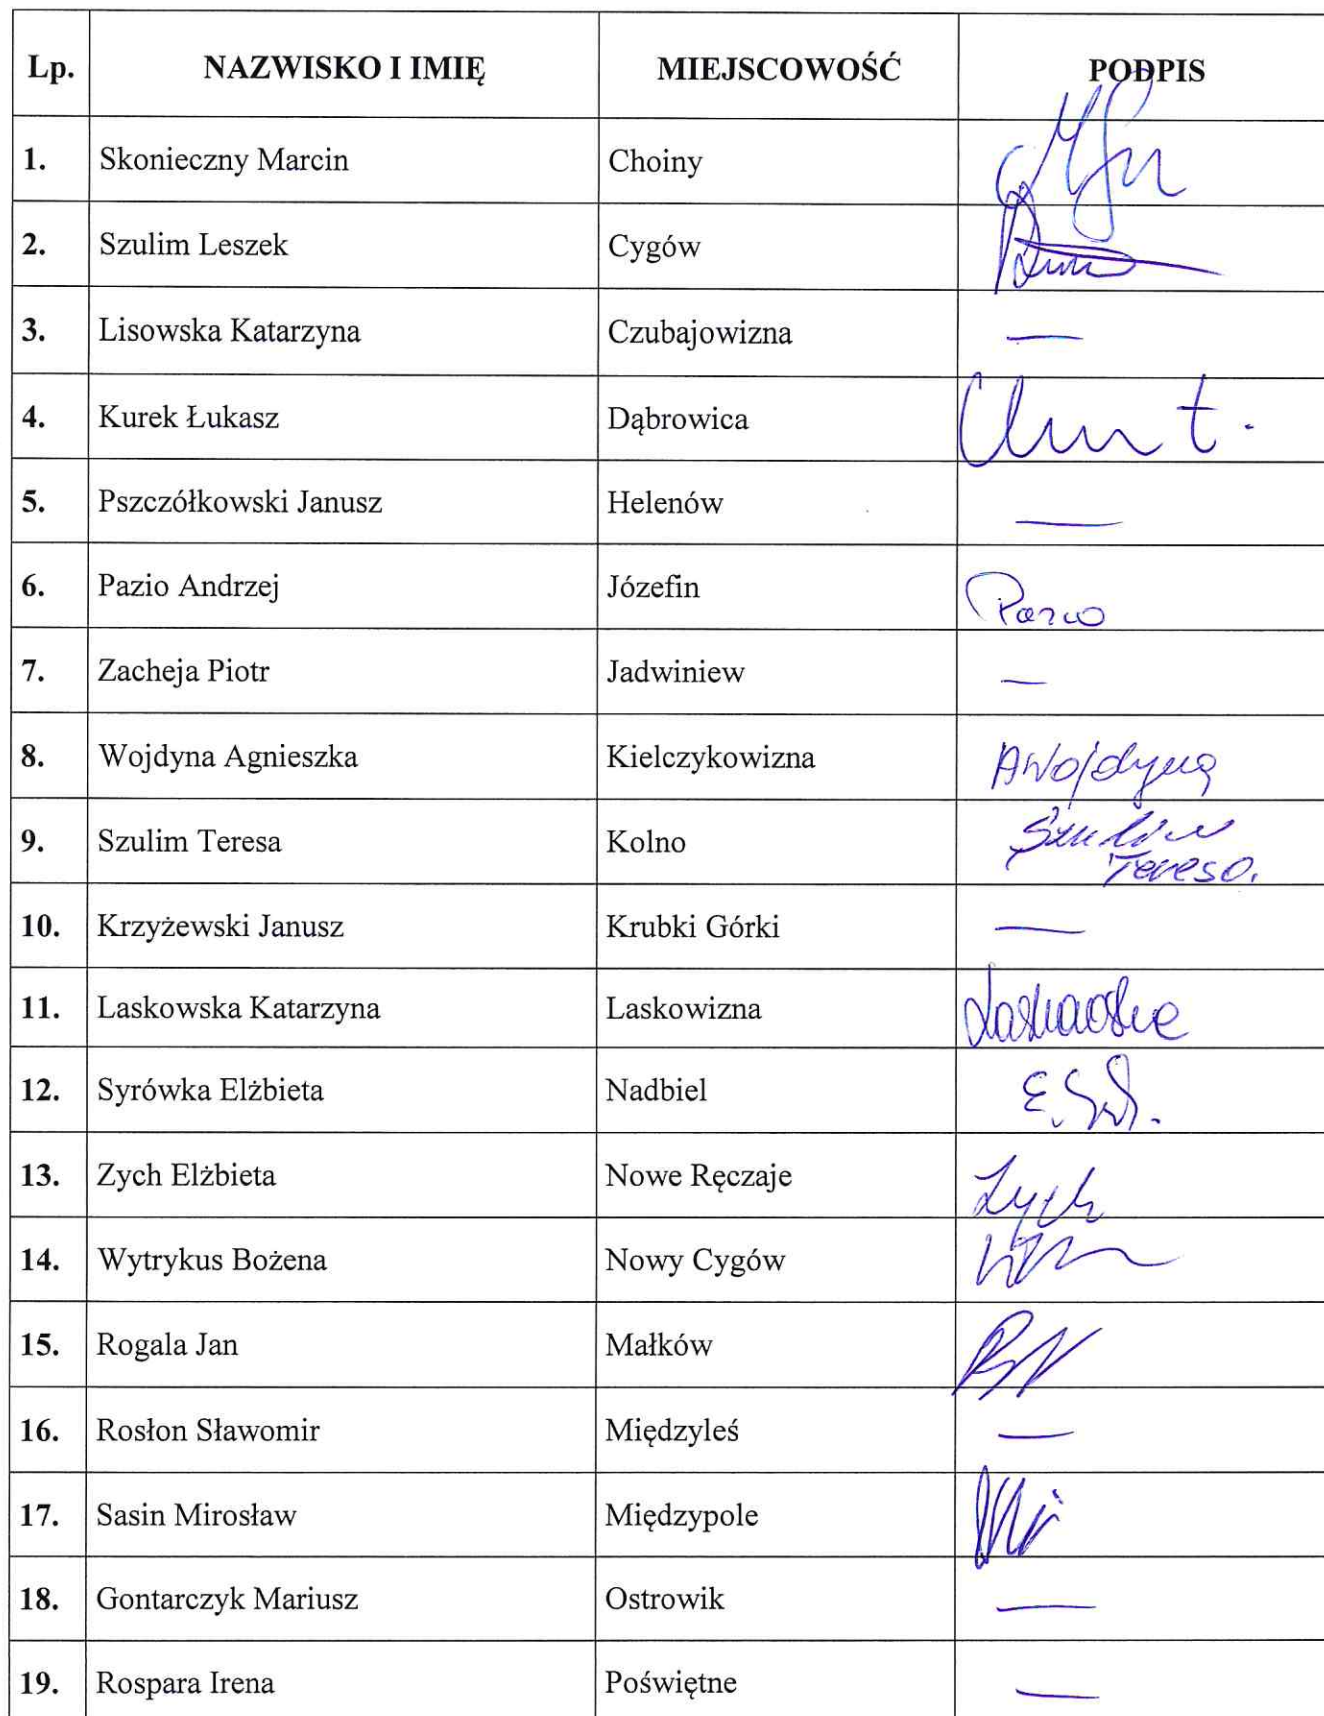 Lp. NAZWISKO I IMIĘ MIEJSCOWOŚĆ PODPIS
1. Skonieczny Marcin Choiny
2. Szulim Leszek Cygów
3. Lisowska Katarzyna Czubajowizna —
4. Kurek Łukasz Dąbrowica
5. Pszczółkowski Janusz Helenów —
6. Pazio Andrzej Józefin Pazio
7. Zacheja Piotr Jadwiniew —
8. Wojdyna Agnieszka Kielczykowizna AWojdyna
9. Szulim Teresa Kolno Szulim
Teresa.
10. Krzyżewski Janusz Krubki Górki —
11. Laskowska Katarzyna Laskowizna Laskowska
12. Syrówka Elżbieta Nadbiel
13. Zych Elżbieta Nowe Ręczaje Zych
14. Wytrykus Bożena Nowy Cygów
15. Rogala Jan Małków
16. Rosłon Sławomir Międzyleś —
17. Sasin Mirosław Międzypole
18. Gontarczyk Mariusz Ostrowik —
19. Rospara Irena Poświętne —